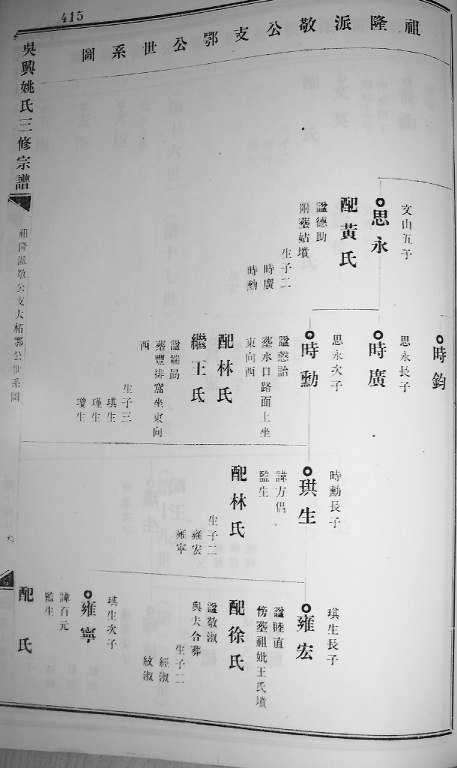 415
祖隆派敬公支鄂公世系圖
吳興姚氏三修宗譜
祖隆派敬公支大柘鄂公世系圖
文山五子
思永
配黃氏
諡德助
附墓姑墳
生子二
時廣
時勳
時鈞
思永長子
時廣
思永次子
時勳
墓水口路面上坐
東向西
配林氏
繼王氏
諡端勗
墓豐排窩坐東向
西
生子三
琪生
瑾生
瓊生
時勳長子
琪生
諱方侶
監生
配林氏
生子二
雍宏
雍寧
琪生長子
雍宏
諡睦直
傍墓祖妣王氏墳
配徐氏
諡敬淑
與夫合葬
生子二
經淑
紋淑
琪生次子
雍寧
諱百元
監生
配 氏